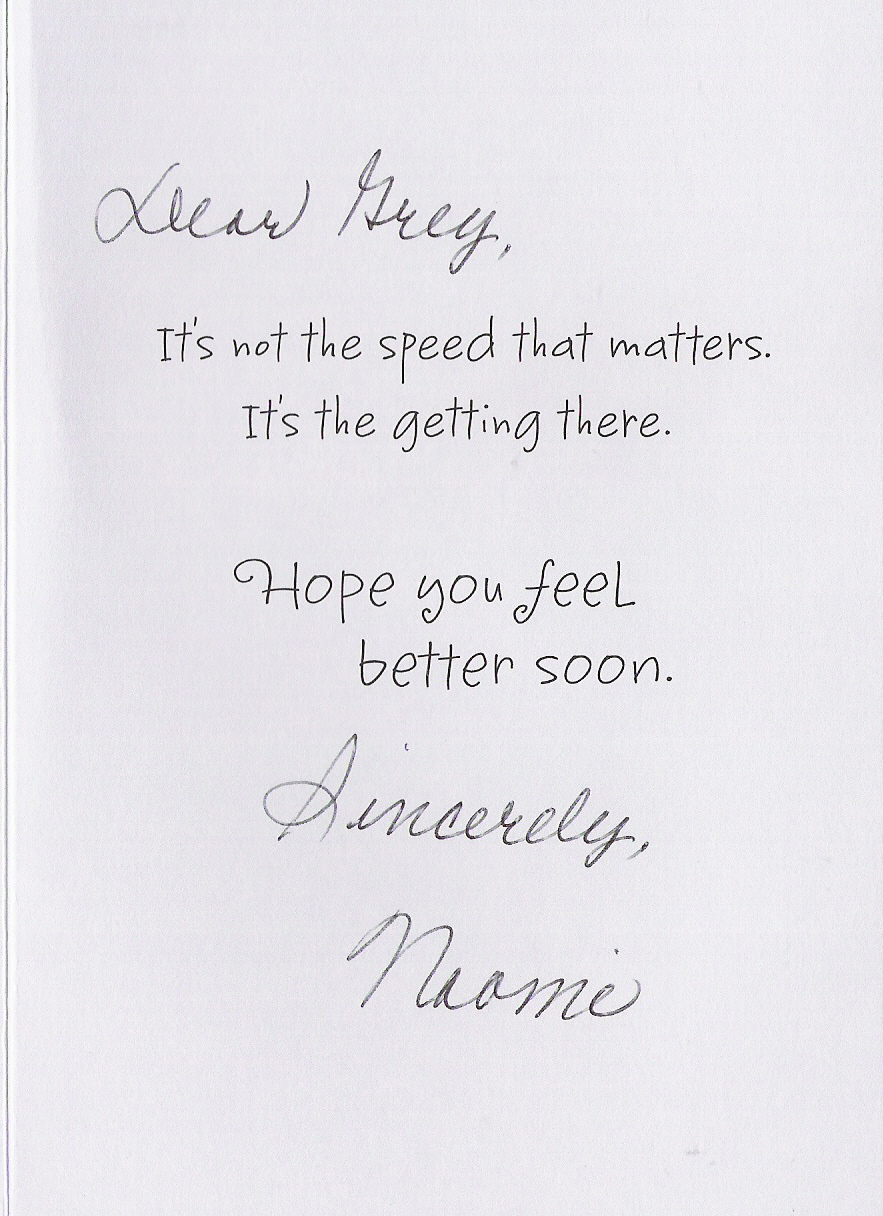 Dear Grey,
It's not the speed that matters.
It's the getting there.
Hope you feel
better soon.
Sincerely,
Naomi